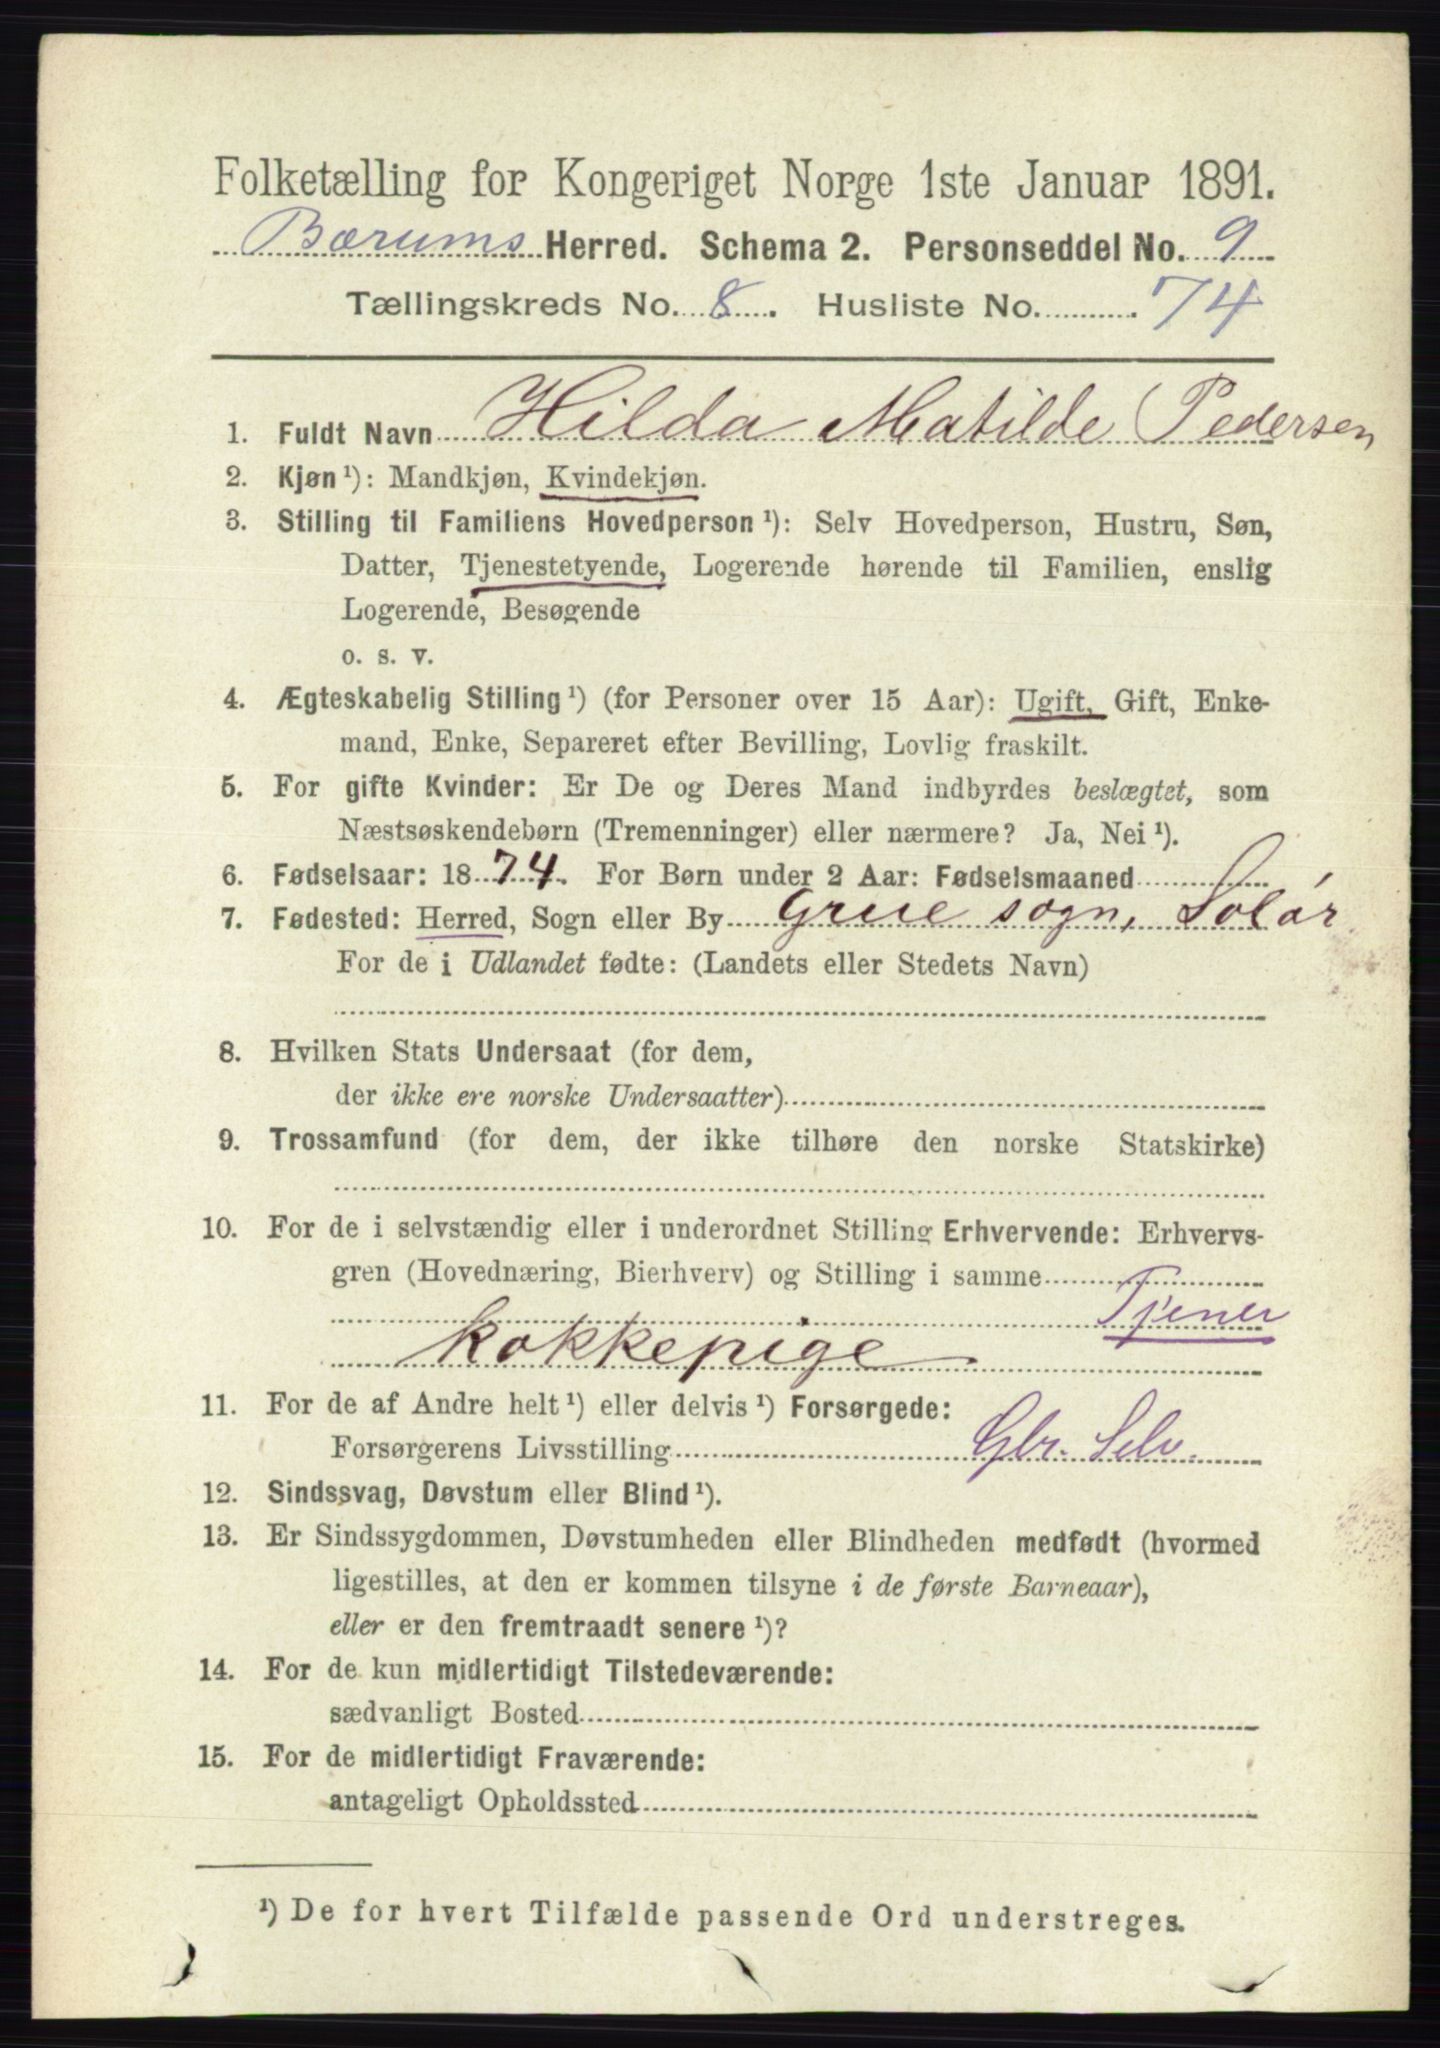 Folketælling for Kongeriget Norge 1ste Januar 1891.
Bærums Herred. Schema 2. Personseddel No. 9
Tællingskreds No. 8. Husliste No. 74
1. Fuldt Navn Hilda Matilde Pedersen
2. Kjøn ¹): Mandkjøn, Kvindekjøn.
3. Stilling til Familiens Hovedperson ¹): Selv Hovedperson, Hustru, Søn,
Datter, Tjenestetyende, Logerende hørende til Familien, enslig
Logerende, Besøgende
o. s. v.
4. Ægteskabelig Stilling ¹) (for Personer over 15 Aar): Ugift, Gift, Enke-
mand, Enke, Separeret efter Bevilling, Lovlig fraskilt.
5. For gifte Kvinder: Er De og Deres Mand indbyrdes beslægtet, som
Næstsøskendebørn (Tremenninger) eller nærmere? Ja, Nei ¹).
6. Fødselsaar: 1874. For Børn under 2 Aar: Fødselsmaaned
7. Fødested: Herred, Sogn eller By Grue sogn, Solør
For de i Udlandet fødte: (Landets eller Stedets Navn)
8. Hvilken Stats Undersaat (for dem,
der ikke ere norske Undersaatter)
9. Trossamfund (for dem, der ikke tilhøre den norske Statskirke)
10. For de i selvstændig eller i underordnet Stilling Erhvervende: Erhvervs-
gren (Hovednæring, Bierhverv) og Stilling i samme
Tjener
Kokkepige
11. For de af Andre helt ¹) eller delvis ¹) Forsørgede:
Forsørgerens Livsstilling Gbr. Selv.
12. Sindssvag, Døvstum eller Blind ¹).
13. Er Sindssygdommen, Døvstumheden eller Blindheden medfødt (hvormed
ligestilles, at den er kommen tilsyne i de første Barneaar),
eller er den fremtraadt senere ¹)?
14. For de kun midlertidigt Tilstedeværende:
sædvanligt Bosted
15. For de midlertidigt Fraværende:
antageligt Opholdssted
¹) De for hvert Tilfælde passende Ord understreges.